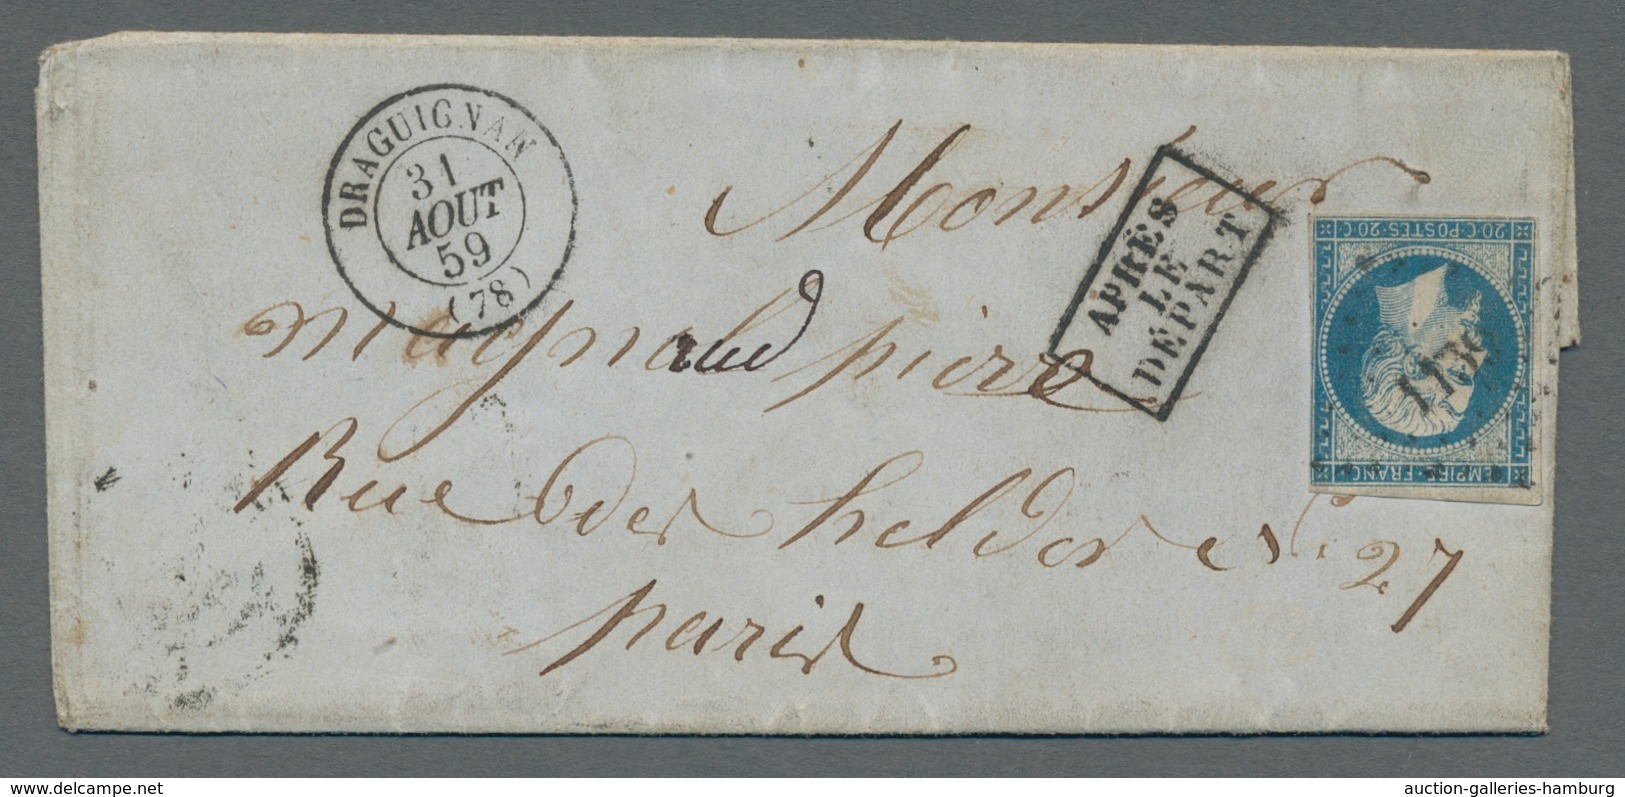 DRAGUIGNAN
31
AOUT
59
(78)
Monsieur
magnaud pierre
Rue du helder N° 27
paris
APRÈS
LE
DÉPART
20·C·POSTES·20·C
EMPIRE FRANC
delcampe.net
auction-galleries-hamburg